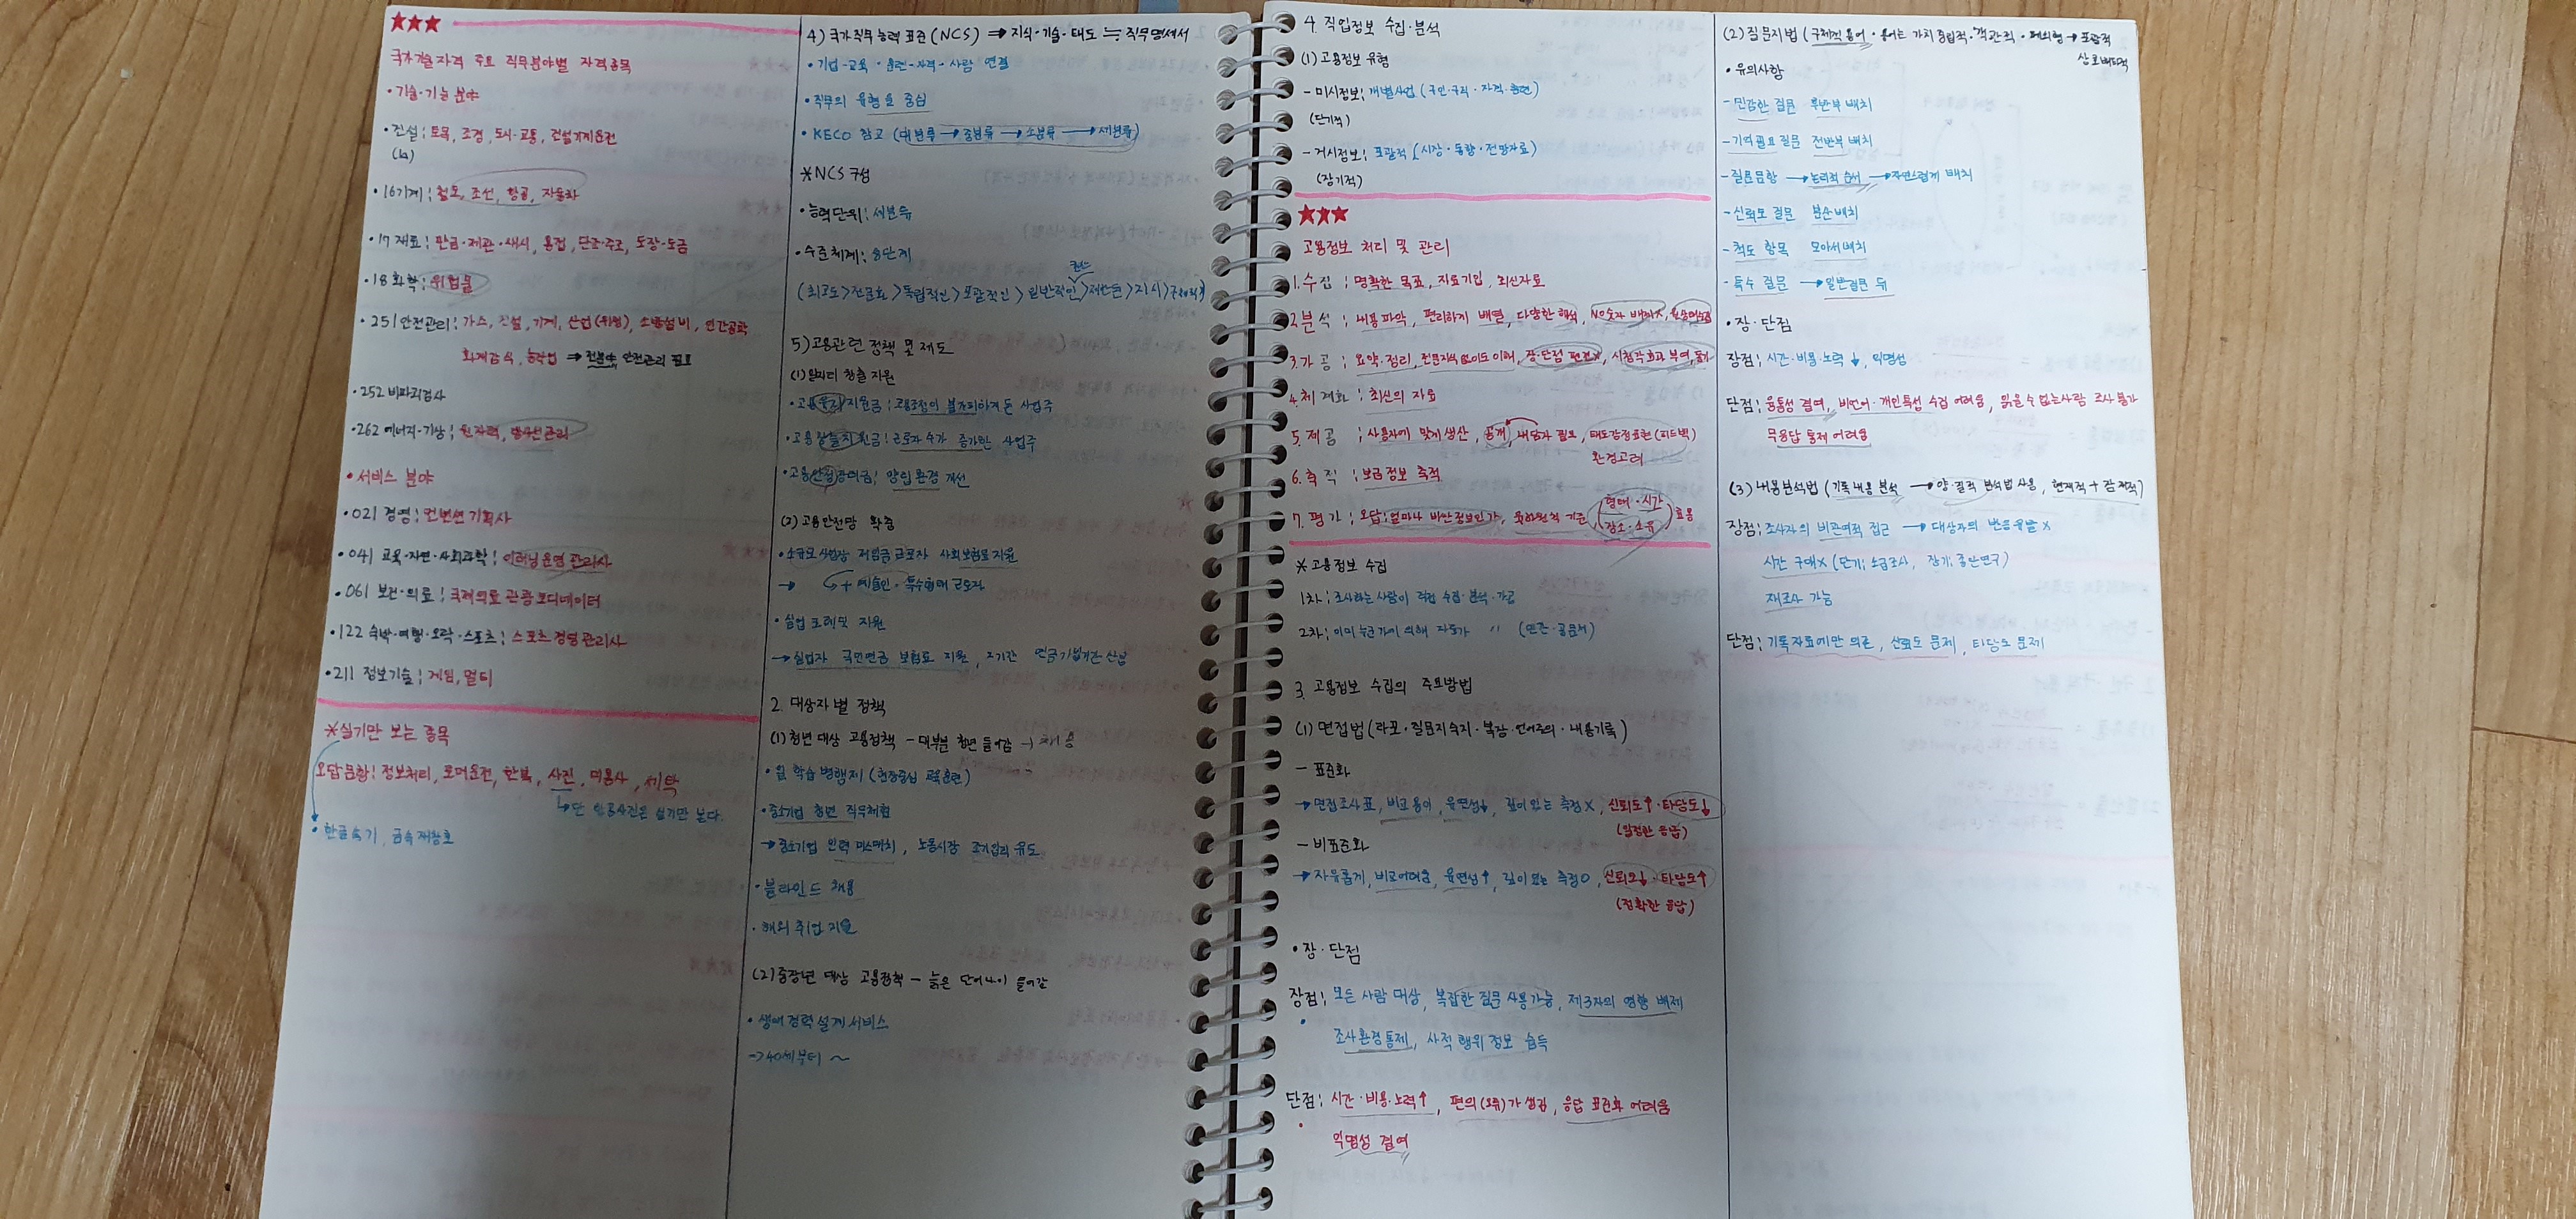 ★★★
국가기술자격 주요 직무분야별 자격종목
• 기술·기능 분야
• 건설; 토목, 조경, 도시·교통, 건설기계운전
(14)
• 16기계; 철도, 조선, 항공, 자동차
• 17 재료; 판금·제관·새시, 용접, 단조·주조, 도장·도금
• 18 화학; 위험물
• 251 안전관리; 가스, 건설, 기계, 산업(위생), 소방설비, 인간공학
화재감식, 농작업 → 안전관리 필요
• 252 비파괴검사
• 262 에너지·기상; 원자력, 방사선관리
• 서비스 분야
• 021 경영; 컨벤션기획사
• 041 교육·자연·사회과학; 이러닝운영관리사
• 061 보건·의료; 국제의료관광코디네이터
• 122 숙박·여행·오락·스포츠; 스포츠경영관리사
• 211 정보기술; 게임, 멀티
※실기만 보는 종목
오답문항; 정보처리, 로더운전, 한복, 사진, 미용사, 세탁
↳단 항공사진은 실기만 본다.
• 한글속기, 금속재창호
4) 국가직무능력표준(NCS) ⇒ 지식·기술·태도 ≒ 직무명세서
• 기업-교육·훈련-자격-사람 연결
• 직무의 유형을 중심
• KECO 참고 (대분류 → 중분류 → 소분류 → 세분류)
※NCS 구성
• 능력단위; 세분류
• 수준체계; 8단계
(최고도 > 전문화 > 독립적인 > 포괄적인 > 일반적인 > 제한된 > 지시 >
5) 고용관련 정책 및 제도
(1) 일자리 창출 지원
• 고용유지지원금; 고용조정이 불가피하게 된 사업주
• 고용창출지원금; 근로자 수가 증가한 사업주
• 고용안정장려금; 양립환경 개선
(2) 고용안전망 확충
• 소규모 사업장 저임금 근로자 사회보험료 지원
→ ↳ + 예술인·특수형태 근로자
• 실업 크레딧 지원
→ 실업자 국민연금 보험료 지원, 그기간 연금가입기간 산입
2. 대상자별 정책
(1) 청년 대상 고용정책 - 대부분 청년 들어감 →
• 일 학습 병행제 (현장중심 교육훈련)
• 중소기업 청년 직무체험
→ 중소기업 인력 미스매치, 노동시장 조기입직 유도
• 블라인드 채용
• 해외 취업 지원
(2) 중장년 대상 고용정책 - 늙은 단어나이 들어감
• 생애경력설계서비스
→ 40세부터 ~
4. 직업정보 수집·분석
(1) 고용정보 유형
- 미시정보; 개별사업 (구인·구직·자격·훈련)
(단기적)
- 거시정보; 포괄적 (시장·동향·전망자료)
(장기적)
★★★
고용정보 처리 및 관리
1. 수집; 명확한 목표, 자료기입, 최신자료
2. 분석; 내용파악, 편리하게 배열, 다양한 해석,
3. 가공; 요약·정리, 전문지식 없이도 이해, 장·단점 편견X, 시청각효과 부여,
4. 체계화; 최신의 자료
5. 제공; 사용자에 맞게 생산, 공개, 내담자 필요, 태도감정표현(피드백)
환경고려
6. 축적; 보급정보 축적
7. 평가; 오답; 얼마나 비싼정보인가, 기준 (형태·시간
장소·소유) 효용
※고용정보 수집
1차; 조사하는 사람이 직접 수집·분석·가공
2차; 이미 누군가에 의해 자료가 〃 (문헌·공문서)
3. 고용정보 수집의 주요방법
(1) 면접법 (라포·질문지숙지·복장·언어주의·내용기록)
- 표준화
→ 면접조사표, 비교용이, 유연성↓, 깊이 있는 측정X, 신뢰도↑·타당도↓
(일정한 응답)
- 비표준화
→ 자유롭게, 비교어려움, 유연성↑, 깊이 있는 측정O, 신뢰도↓·타당도↑
(정확한 응답)
• 장·단점
장점; 모든 사람 대상, 복잡한 질문 사용가능, 제3자의 영향 배제
조사환경통제, 사적 행위 정보 습득
단점; 시간·비용·노력↑, 편의(오류)가 생김, 응답 표준화 어려움
익명성 결여
(2) 질문지법 (구체적 용어·용어는 가치중립적·객관적·폐쇄형 → 포괄적
상호배타적
• 유의사항
- 민감한 질문 후반부 배치
- 기억필요 질문 전반부 배치
- 질문문항 → 논리적 순서 → 자연스럽게 배치
- 신뢰도 질문 분산 배치
- 척도 항목 모아서 배치
- 특수 질문 → 일반질문 뒤
• 장·단점
장점; 시간·비용·노력↓, 익명성
단점; 융통성 결여, 비언어·개인특성 수집 어려움, 읽을수 없는사람 조사 불가
무응답 통제 어려움
(3) 내용분석법 (기록내용 분석 → 양·질적 분석법 사용, 현재적 + 잠재적)
장점; 조사자의 비관여적 접근 → 대상자의 반응유발X
시간 구애X (단기; 소급조사, 장기; 종단연구)
재조사 가능
단점; 기록자료에만 의존, 신뢰도 문제, 타당도 문제